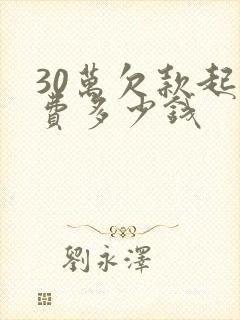 30萬欠款起
費多少錢
劉永澤